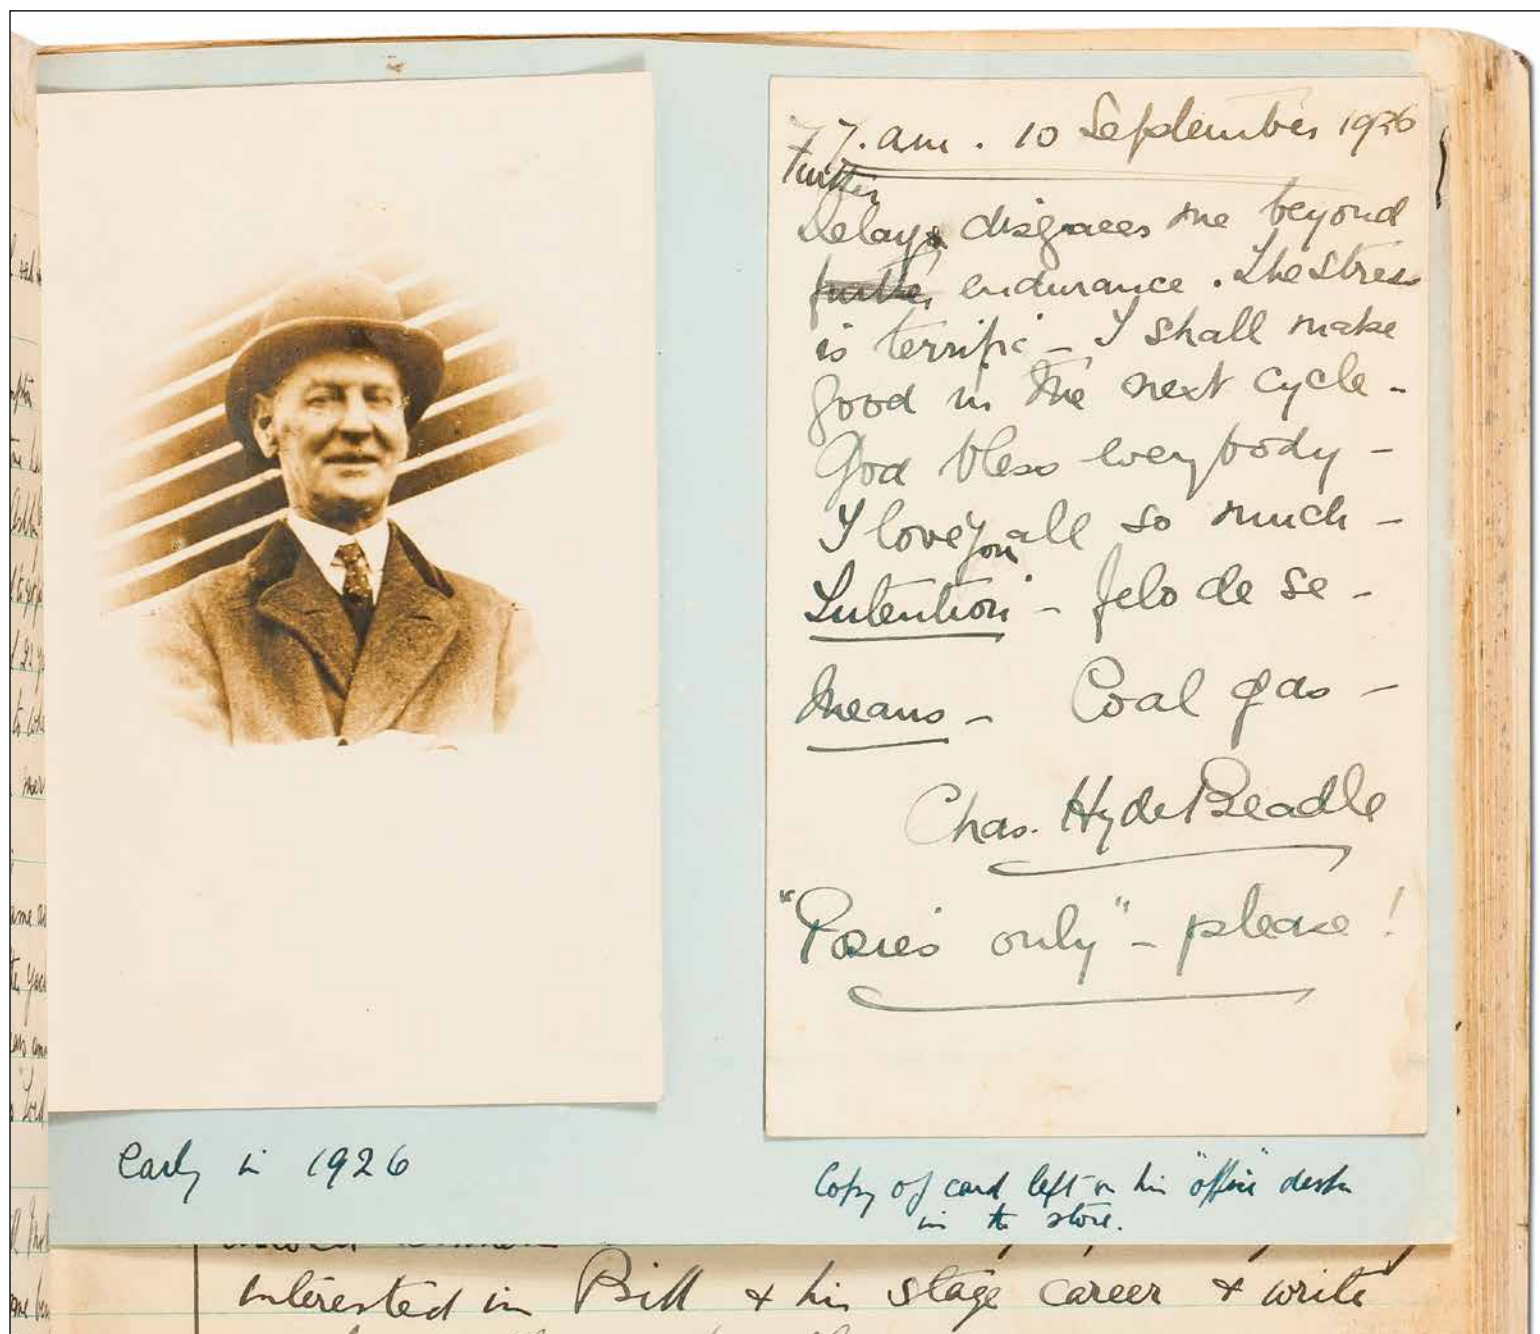 7. am. 10 September 1926
Further
Delay disgraces me beyond
further endurance. The stress
is terrific – I shall make
good in the next cycle –
God bless everybody –
I love you all so much –
Intention – felo de se –
Means – Coal gas –
Chas. Hyde Beadle
"Posies only" – please!
Early in 1926
Copy of card left on his "office" desk
in the store.
interested in Bill & his stage career & write